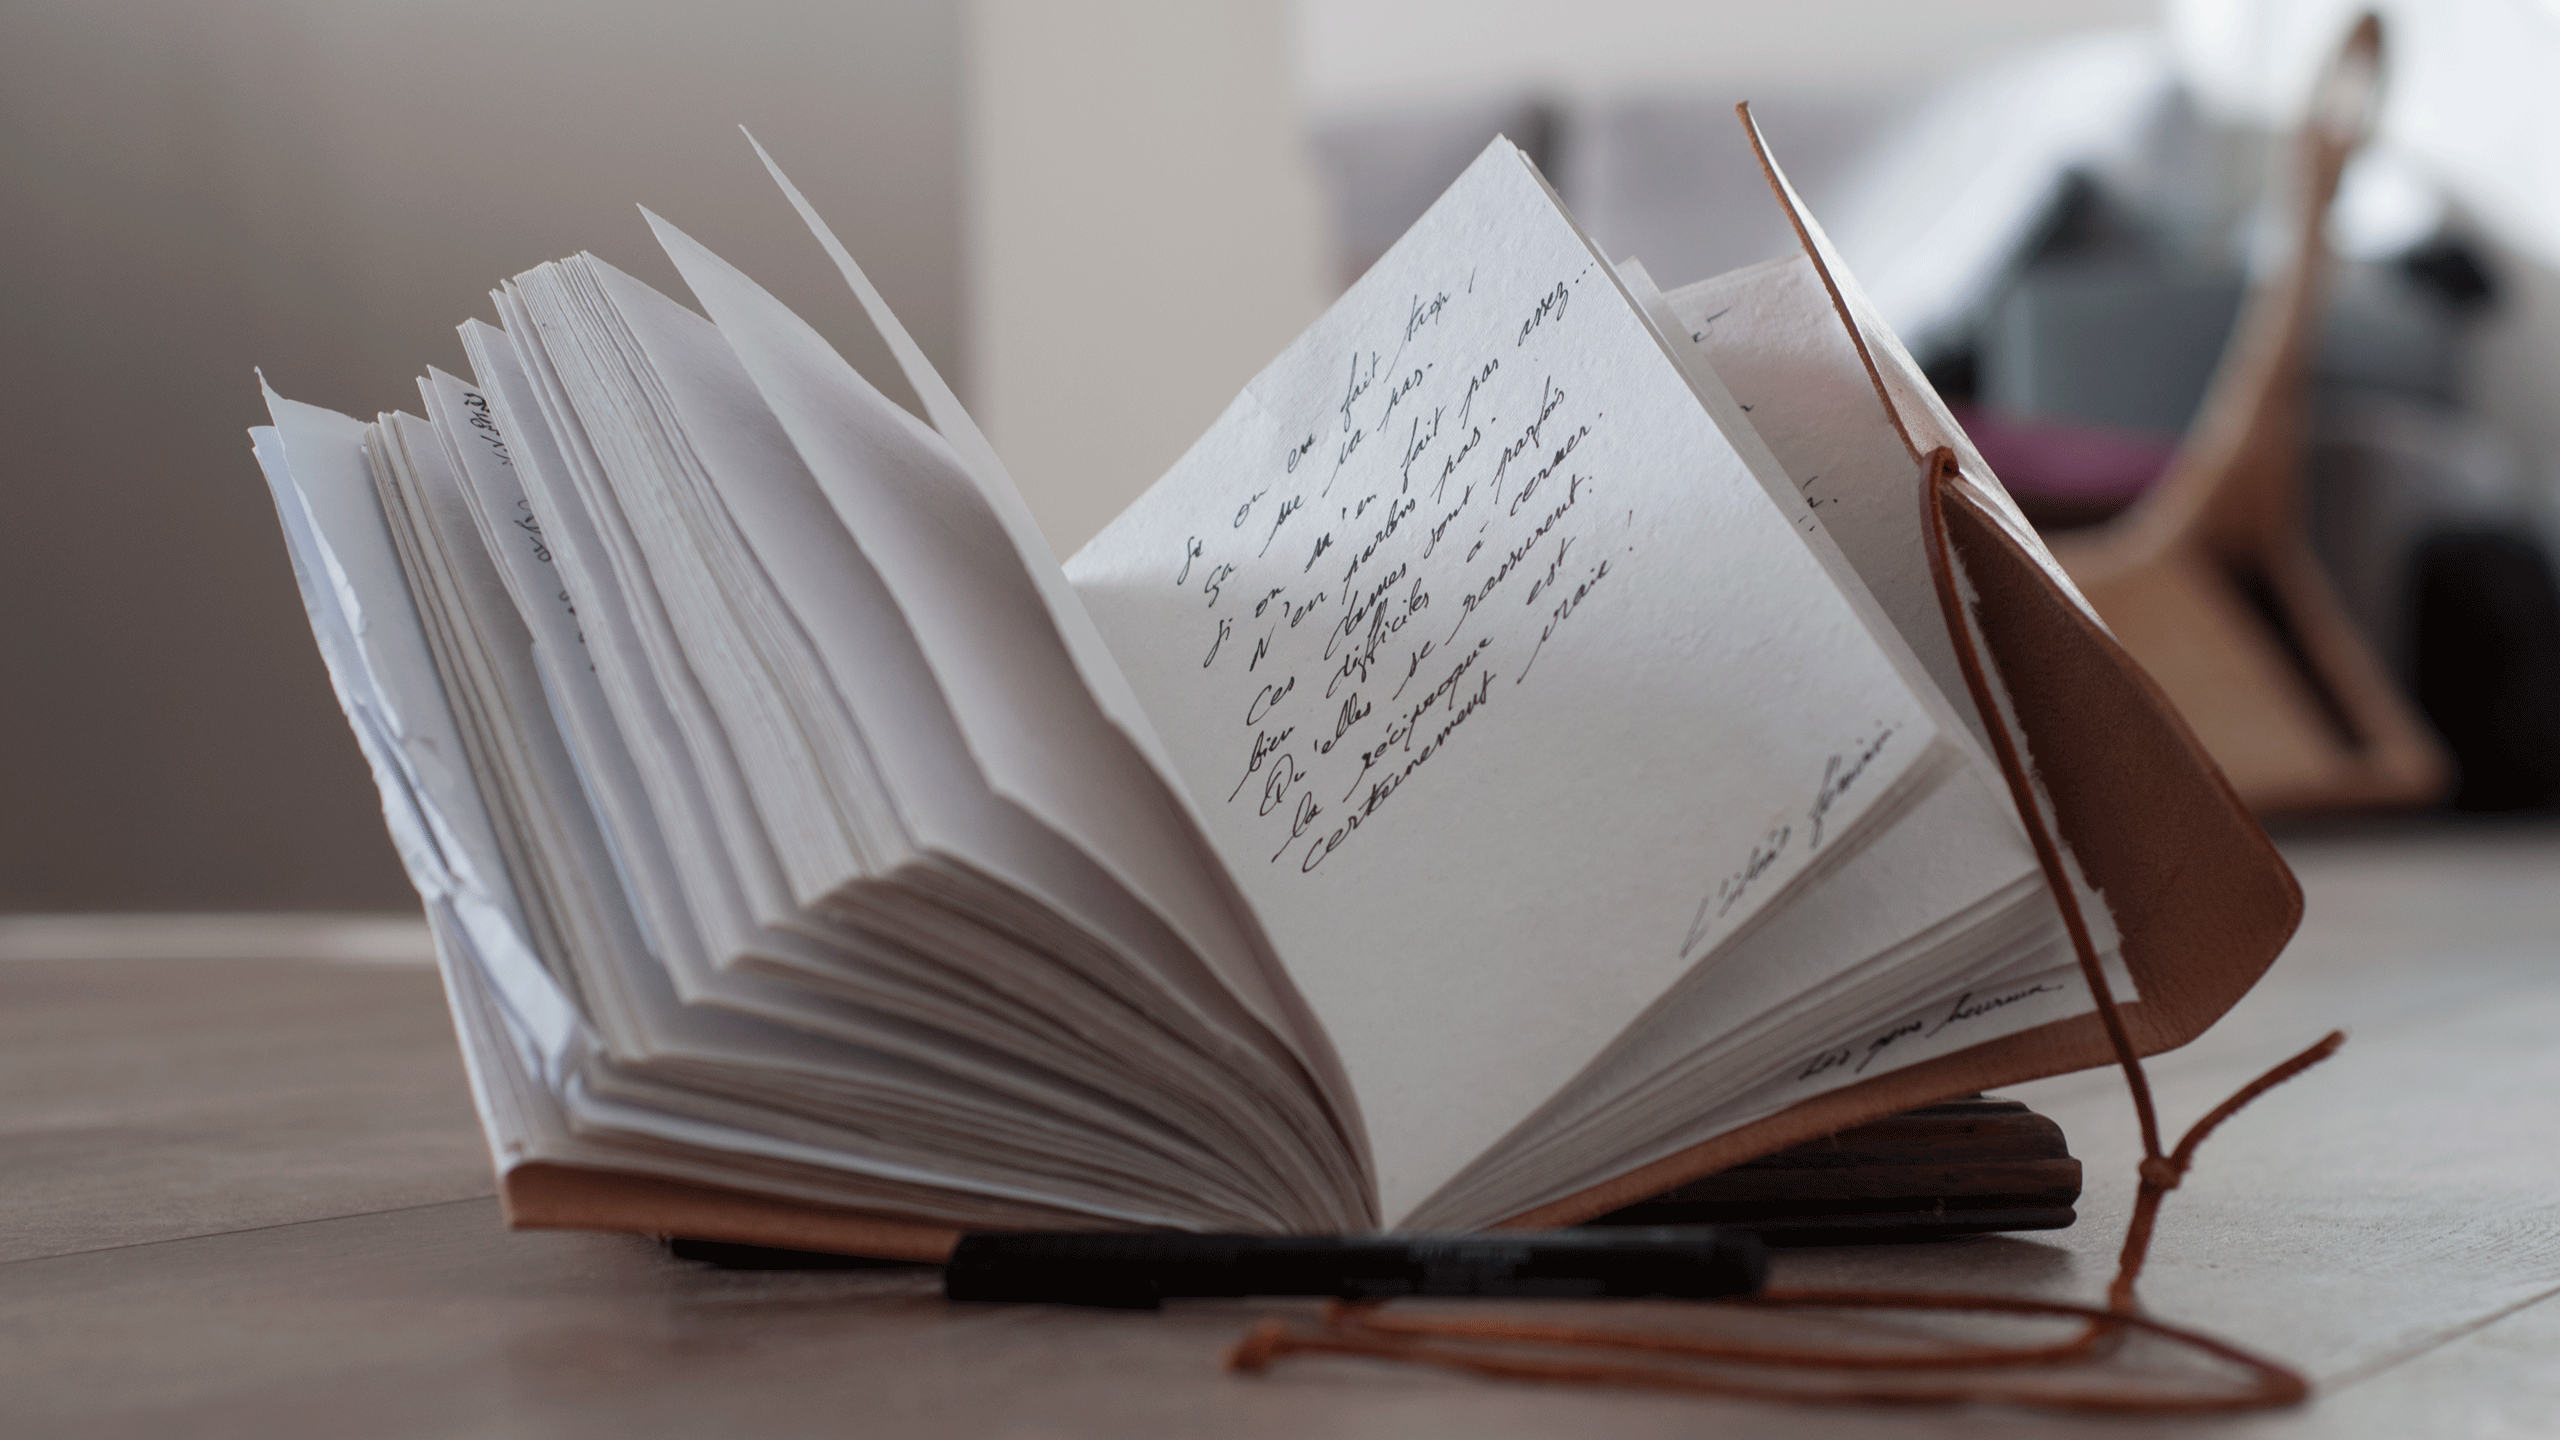 Si on en fait trop !
Ça ne va pas.
Si on n'en fait pas assez...
N'en parlons pas.
Ces dames sont parfois
bien difficiles à cerner.
Qu'elles se rassurent:
la réciproque est
certainement vraie !
féminin.
Les gens heureux.